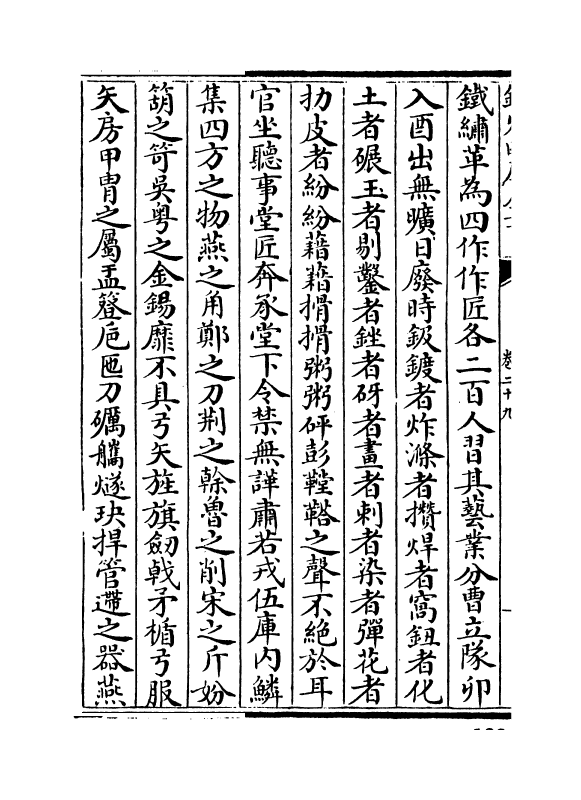 卷二十九
鐵繡革為四作作匠各二百人習其藝業分曹立隊卯
入酉出無曠日廢時鈑鍍者炸滌者攢焊者窩鈕者化
土者碾玉者剔鑿者銼者砑者畫者刺者染者彈花者
扐皮者紛紛藉藉搰搰粥粥砰彭鞺鞳之聲不絶於耳
官坐聽事堂匠奔承堂下令禁無譁肅若戎伍庫内鱗
集四方之物燕之角鄭之刀荆之榦魯之削宋之斤妢
箭之笴吳粤之金錫靡不具弓矢旌旗劒戟矛楯弓服
矢房甲胄之屬盂簦巵匜刀礪觿燧玦捍管遰之器燕